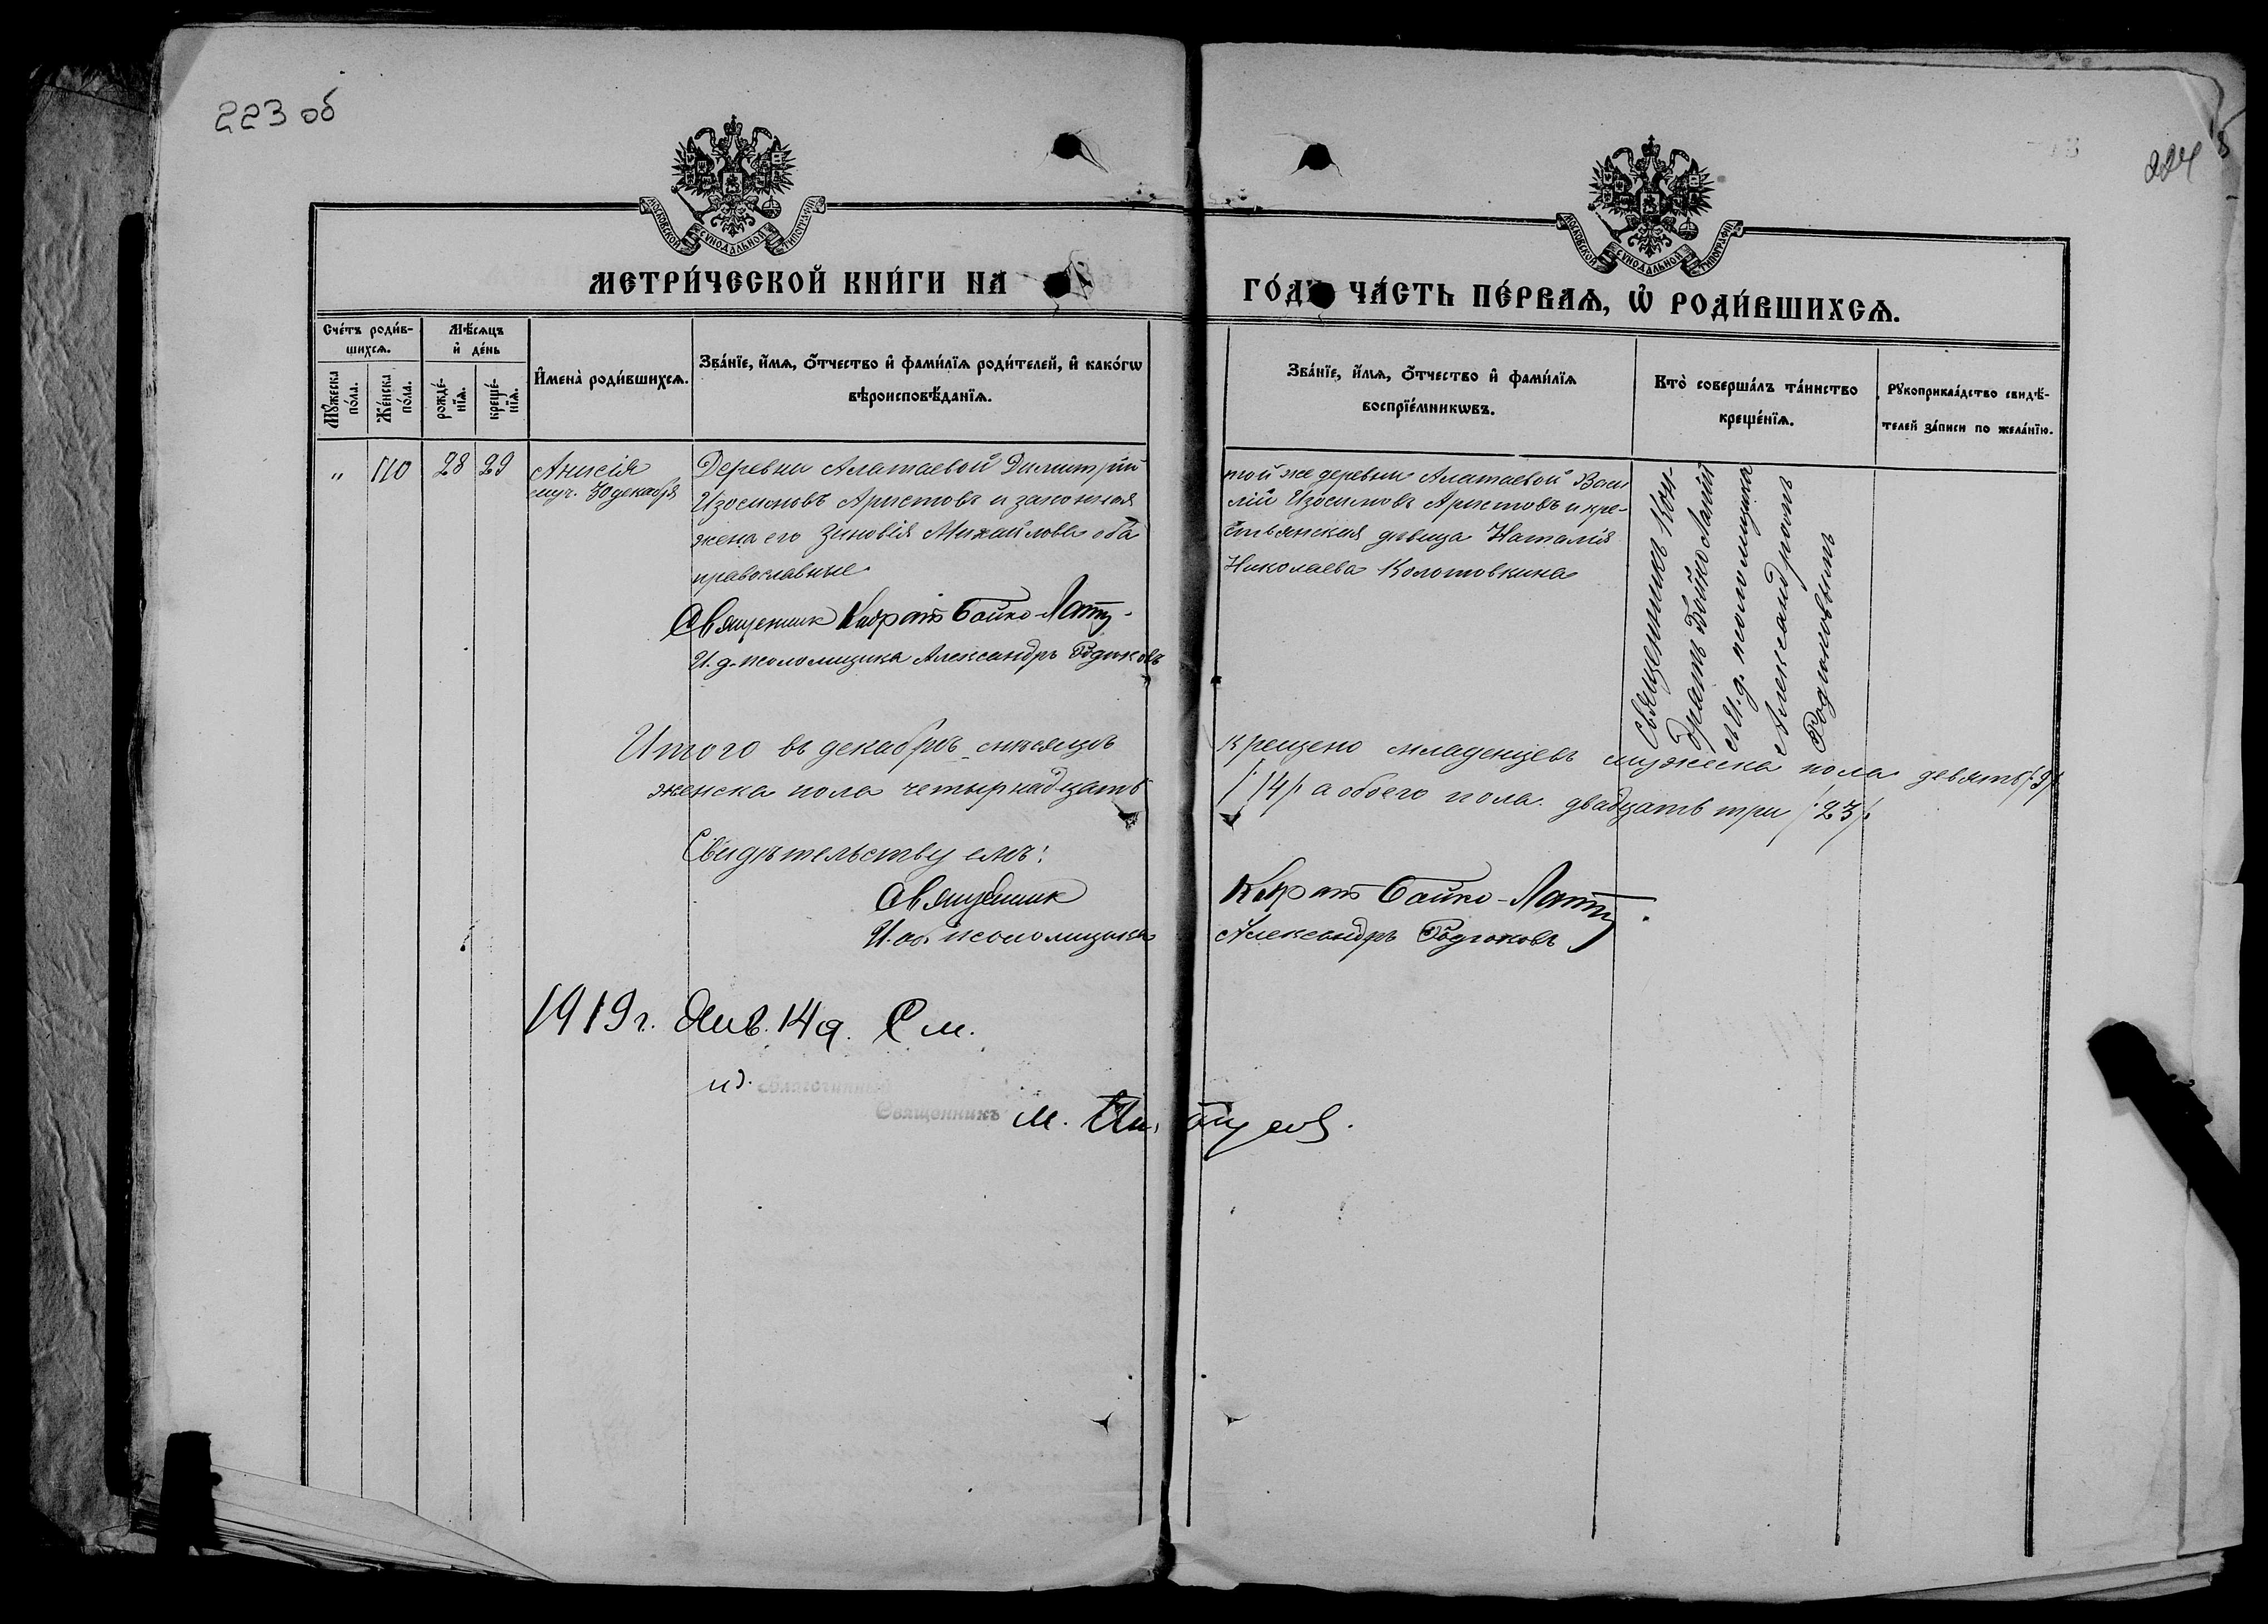 223 об
224
МОСКОВСКОЙ СѴНОДАЛЬНОЙ ТИПОГРАФІИ
МОСКОВСКОЙ СѴНОДАЛЬНОЙ ТИПОГРАФІИ
МЕТРИ́ЧЕСКОЙ КНИ́ГИ НА
ГО́ДЪ ЧА́СТЬ ПЕ́РВАѦ, Ѡ҆ РОДИ́ВШИХСѦ.
Сче́тъ роди́в-
шихсѧ.
Мꙋ́жеска по́ла.
Же́нска по́ла.
Мѣ́сѧцъ
и҆ де́нь
рожде́-
нїѧ.
креще́-
нїѧ.
И҆мена̀ роди́вшихсѧ.
Зва́нїе, и҆́мѧ, ѻ҆́тчество и҆ фами́лїѧ роди́телей, и҆ како́гѡ
вѣроисповѣ́данїѧ.
Зва́нїе, и҆́мѧ, ѻ҆́тчество и҆ фами́лїѧ
воспрїе́мникѡвъ.
Кто̀ соверша́лъ та́инство
креще́нїѧ.
Рꙋкоприкла́дство свидѣ́-
телей за́писи по жела́нїю.
" 110 28 29
Анисія
муч. 30 декабря
Деревни Алатаевой Димитрій
Изосимовъ Аристовъ и законная
жена его Зиновія Михайлова оба
православные
Священник Кодратъ Бойко-Латы-
И. д. псаломщика Александръ Родюковъ
той же деревни Алатаевой Васи
лій Изосимовъ Аристовъ и кре-
стьянская дѣвица Наталія
Николаева Колотовкина
Священникъ Кон-
дратъ Бойко
И. д. псаломщика
Александромъ
Итого въ декабрѣ мѣсяцѣ крещено младенцевъ мужеска пола девять /:9:/
женска пола четырнадцать /:14/: а обоего пола двадцать три /:23/:
Свидѣтельствуемъ:
Священник Кодратъ Бойко-Латы
И. об. псаломщика Александръ Родюковъ
1919 г. Янв. 14 д. См.
и.д. Благочинный
Священникъ М.